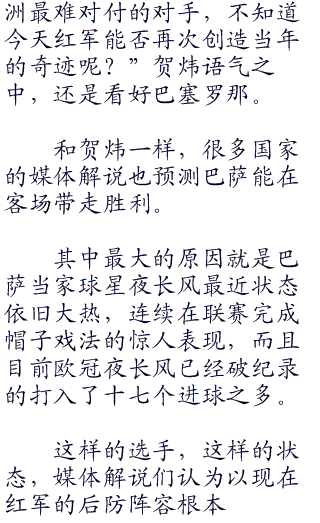 洲最难对付的对手，不知道
今天红军能否再次创造当年
的奇迹呢？”贺炜语气之
中，还是看好巴塞罗那。
和贺炜一样，很多国家
的媒体解说也预测巴萨能在
客场带走胜利。
其中最大的原因就是巴
萨当家球星夜长风最近状态
依旧大热，连续在联赛完成
帽子戏法的惊人表现，而且
目前欧冠夜长风已经破纪录
的打入了十七个进球之多。
这样的选手，这样的状
态，媒体解说们认为以现在
红军的后防阵容根本